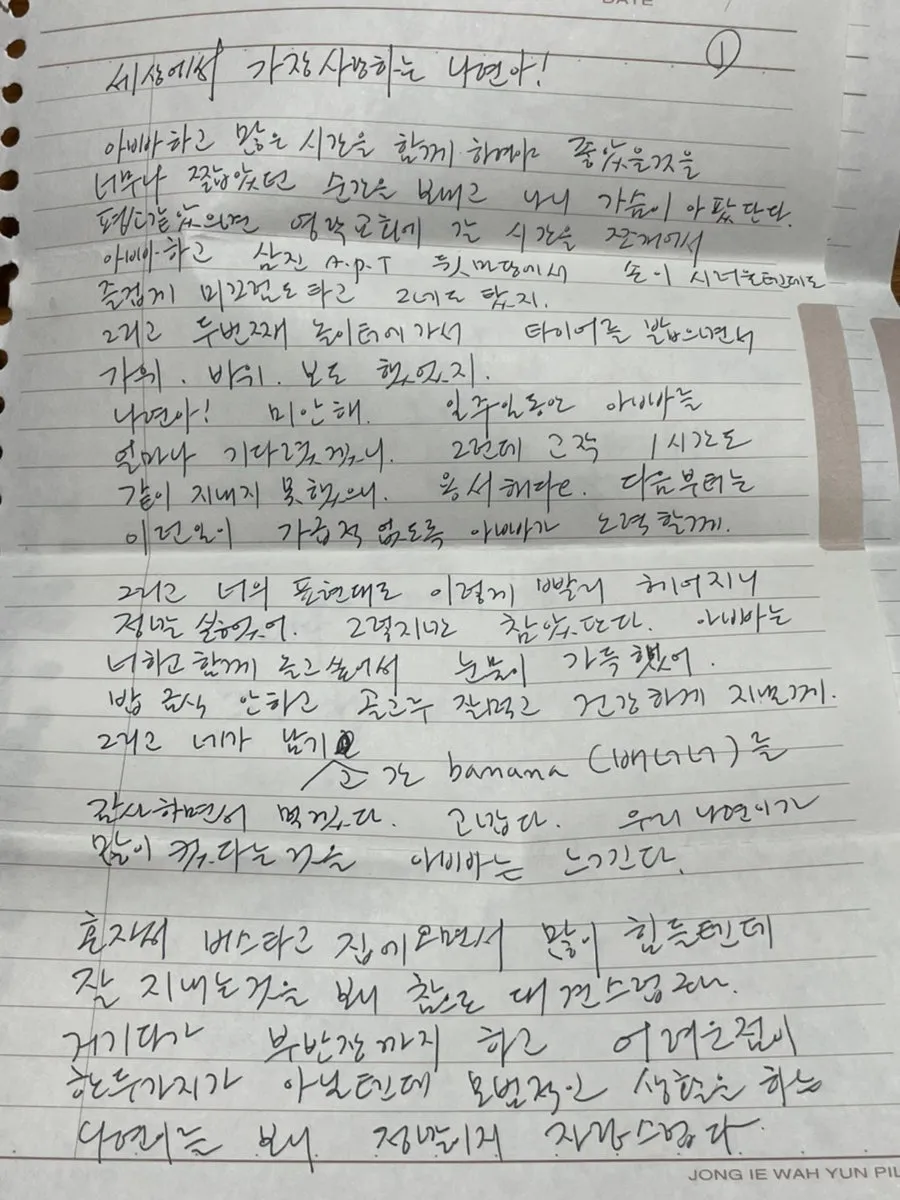 DATE
①
세상에서 가장 사랑하는 나연아!
아빠하고 많은 시간을 함께 하여야 좋았을것을
너무나 짧았던 순간을 보내고 나니 가슴이 아팠단다.
평소같았으면 영락교회에 갈 시간을 쪼개어서
아빠하고 삼진 A.P.T 뒷마당에서 손이 시려울텐데도
즐겁게 미끄럼도 타고 그네도 탔지.
그리고 두번째 놀이터에 가서 타이어를 밟으면서
가위. 바위. 보도 했었지.
나연아! 미안해. 일주일동안 아빠를
얼마나 기다렸겠니. 그런데 고작 1시간도
같이 지내지 못했으니. 용서해다오. 다음부터는
이런일이 가급적 없도록 아빠가 노력할께.
그리고 너의 표현대로 이렇게 빨리 헤어지니
정말 싫었어. 그렇지만 참았단다. 아빠는
너하고 함께 놀고 싶어서 눈물이 가득했어.
밥 금식 안하고 골고루 잘먹고 건강하게 지낼께.
그리고 네가 남기고 간 banana (버너너)를
감사하면서 먹겠다. 고맙다. 우리 나연이가
많이 컸다는 것을 아빠는 느낀다.
혼자서 버스타고 집에오면서 많이 힘들텐데
잘 지내는것을 보니 참으로 대견스럽구나.
거기다가 부반장까지 하고 어려운점이
한두가지가 아닐텐데 모범적인 생활을 하는
나연이를 보니 정말이지 자랑스럽다.
JONG IE WAH YUN PIL